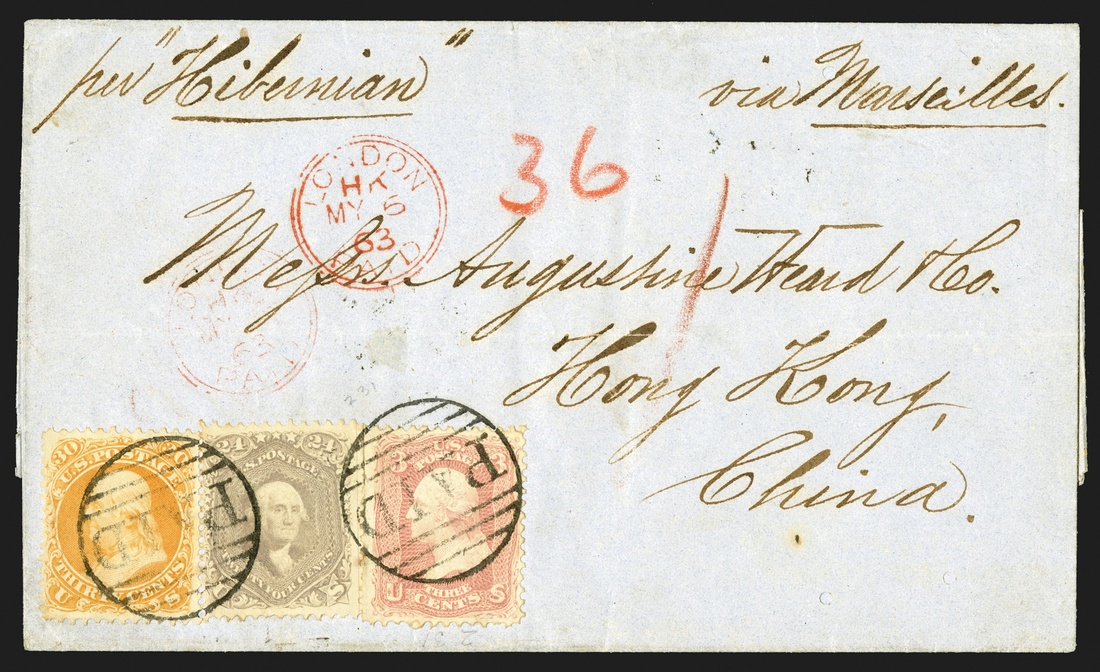 per "Hibernian" via Marseilles.
36
LONDON
HK
MY 6
63
PAID
Messrs. Augustine Heard & Co.
63
PAID
Hong Kong,
China.
231
30 30
U.S. POSTAGE
THIRTY CENTS
U S
PAID
24 24
U.S. POSTAGE
TWENTY FOUR CENTS
U S
3 3
U.S. POSTAGE
THREE
CENTS
U S
PAID